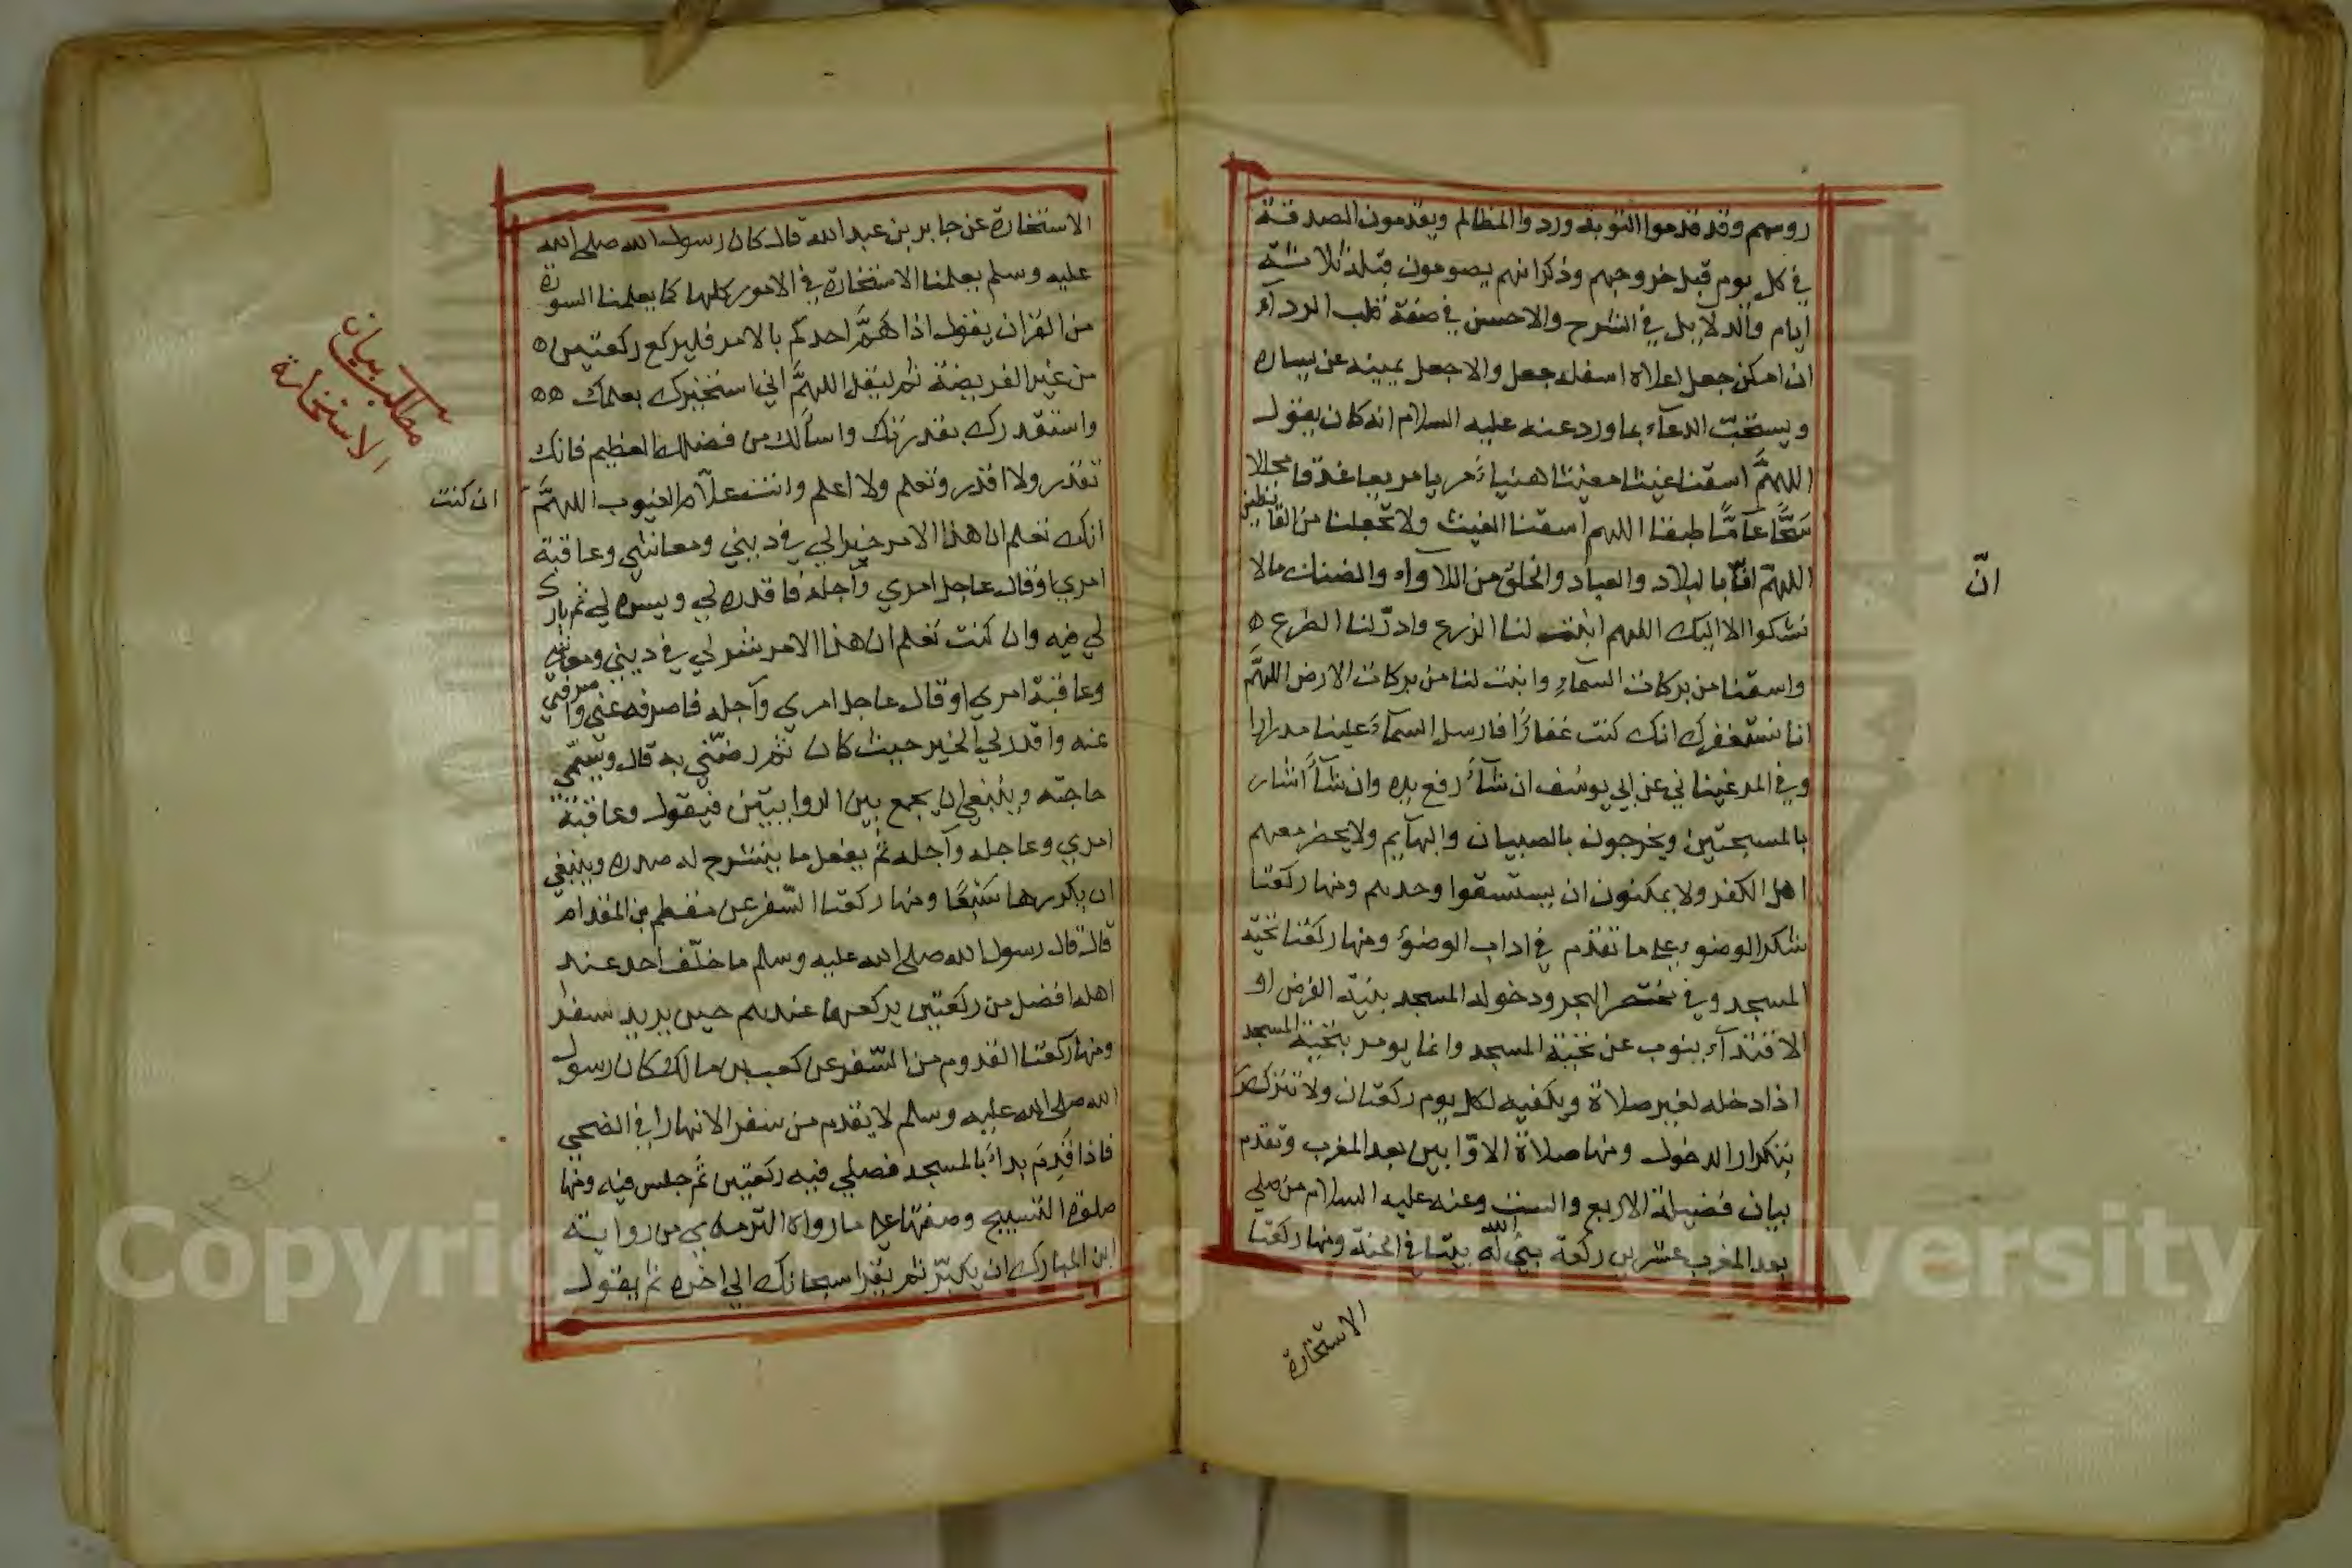 روسهم وقد قدموا التوبة ورد والمظالم ويقدمون الصدقة
في كل يوم قبل خروجهم وذكر انهم يصومون قبله ثلاثة
ايام والدلايل في الشرح والاحسن في صفة قلب الرداء
ان امكن جعل اعلاه اسفله جعل والا جعل يمينه عن يساره
ويستحبّ الدعاء بما ورد عنه عليه السلام انه كان يقول
اللهمّ اسقنا غيثا مغيثا هنياء مريا مريعا غدقا مجللا
سَحًّا عامًّا طبقا اللهم اسقنا الغيث ولا تجعلنا من القانطين
اللهمّ انّ بالبلاد والعباد والخلق من اللاواء والضنك مالا
نشكوا الا اليك اللهم انبت لنا الزرع وادرّ لنا الضرع
واسقنا من بركات السماءِ وانبت لنا من بركات الارض اللهمَّ
انا نستغفرك انك كنت غفارًا فارسل السماءَ علينا مدرارا
وفي المرغيناني عن ابي يوسف ان شاءَ رفع يده وان شاءَ اشار
بالمسبحتين ويخرجون بالصبيان والبهايم ولا يحضر معهم
اهل الكفر ولا يمكنون ان يستسقوا وحدهم ومنها ركعتا
شكر الوضوء على ما تقدم في اداب الوضوء ومنها ركعتا تحيّة
المسجد وفي مختصر البحر ودخوله المسجد بنيّة الفرض او
الاقتداء ينوب عن تحيّة المسجد وانما يومر بتحيّة المسجد
اذا دخله لغير صلاة ويكفيه لكل يوم ركعتان ولا تتكرّر
بتكرار الدخول ومنها صلاة الاوّابين بعد المغرب وتقدم
بيان فضيلة الاربع والست وعنه عليه السلام من صلى
بعد المغرب عشرين ركعة بنى الله لَه بيتا في الجنة ومنها ركعتا
الاستخارة
انّ
الاستخارة عن جابر بن عبد الله قال كان رسول الله صلى الله
عليه وسلم يعلمنا الاستخارة في الامور كلها كما يعلمنا السورة
من القران يقول اذا هَمَّ احدكم بالامر فليركع ركعتين
من غير الفريضة ثم ليقل اللهمَّ اني استخيرك بعلمك
واستقدرك بقدرتك واسألك من فضلك العظيم فانك
تقدر ولا اقدر وتعلم ولا اعلم وانت علّام الغيوب اللهمَّ
ان كنت
انك تعلم ان هذا الامر خيرا لي في ديني ومعاشي وعاقبة
امري او قال عاجل امري وآجله فاقدره لي ويسره لي ثم بارك
لي فيه وان كنت تعلم ان هذا الامر شر لي في ديني ومعاشي
وعاقبة امري او قال عاجل امري وآجله فاصرفه عني واصرفني
عنه واقدر لي الخير حيث كان ثم رضّني به قال ويسمّي
حاجته وينبغي ان يجمع بين الروايتين فيقول وعاقبة
امري وعاجله وآجله ثم يفعل ما ينشرح له صدره وينبغي
ان يكررها سَبْعًا ومنها ركعتا السّفر عن مقطم بن المقدام
قال قال رسول الله صلى الله عليه وسلم ما خلّف احد عند
اهله افضل من ركعتين يركعهما عندهم حين يريد سفرا
ومنها ركعتا القدوم من السّفر عن كعب بن مالك كان رسول
الله صلى الله عليه وسلم لا يقدم من سفر الا نهارا في الضحى
فاذا قَدِمَ بداءَ بالمسجد فصلى فيه ركعتين ثم جلس فيه ومنها
صلوة التسبيح وصفتها على ما رواه الترمذي من رواية
ابن المبارك ان يكبّر ثم يقرا سبحانك الى اخره ثم يقول
مطلب بيان
الاستخارة
Copyright © King Saud University